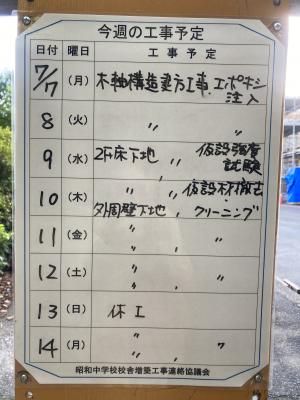 今週の工事予定
日付 曜日 工事予定
7/7 (月) 木軸構造建方工事, エポキシ
注入
8 (火) 〃 〃
9 (水) 2F床下地 〃, 仮設強度
試験
10 (木) 〃 〃, 仮設材撤去
外周壁下地, クリーニング
11 (金) 〃 , 〃
12 (土) 〃 , 〃
13 (日) 休工
14 (月) 〃 , 〃
昭和中学校校舎増築工事連絡協議会